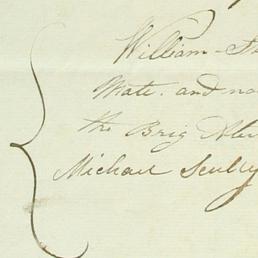 William
Mate. and
the Brig
Michael Scully